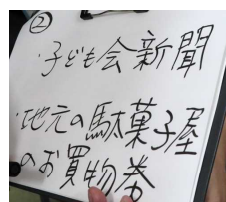 ②
・子ども会新聞
・地元の駄菓子屋
のお買物券